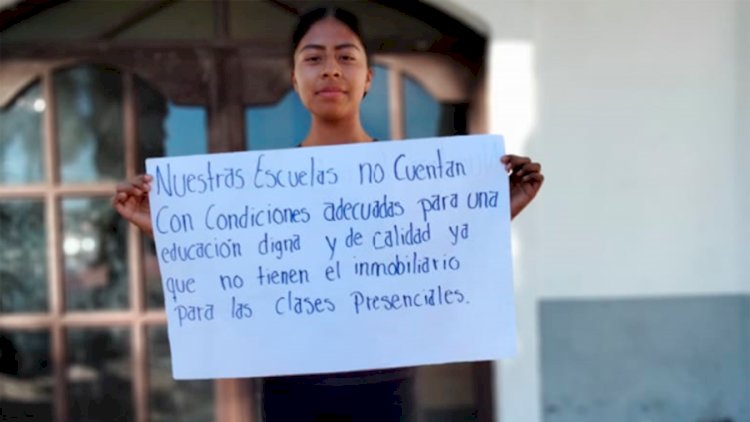 Nuestras Escuelas no Cuentan
Con Condiciones adecuadas para una
educación digna y de calidad ya
que no tienen el inmobiliario
para las clases presenciales.